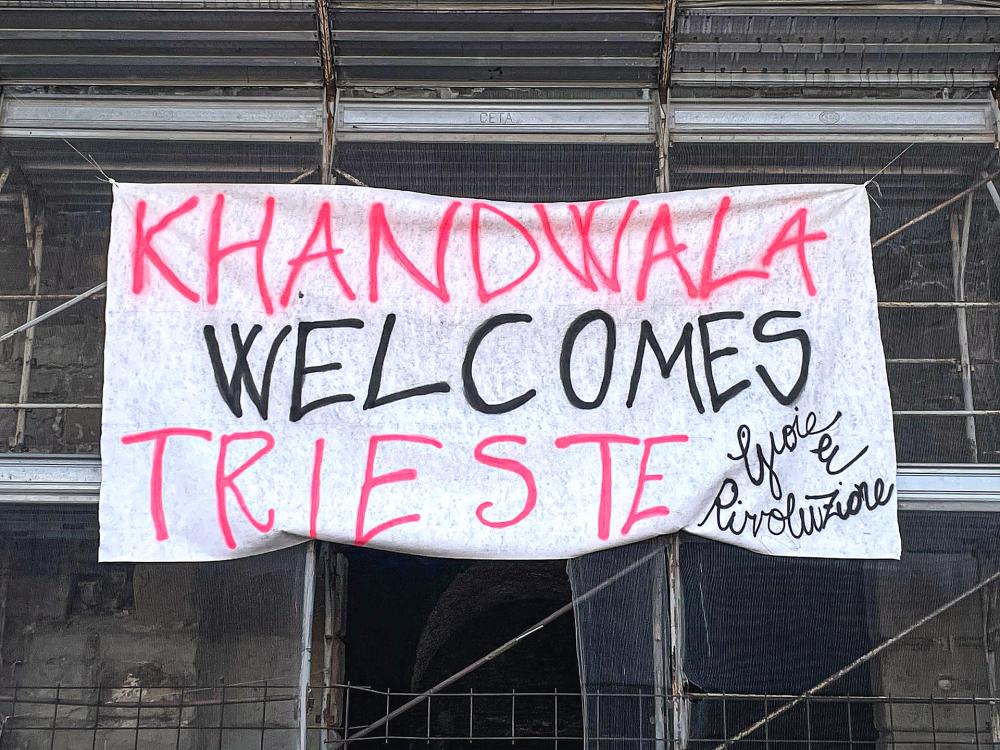 CETA
KHANDWALA
WELCOMES
TRIESTE
Gioie
e
Rivoluzione